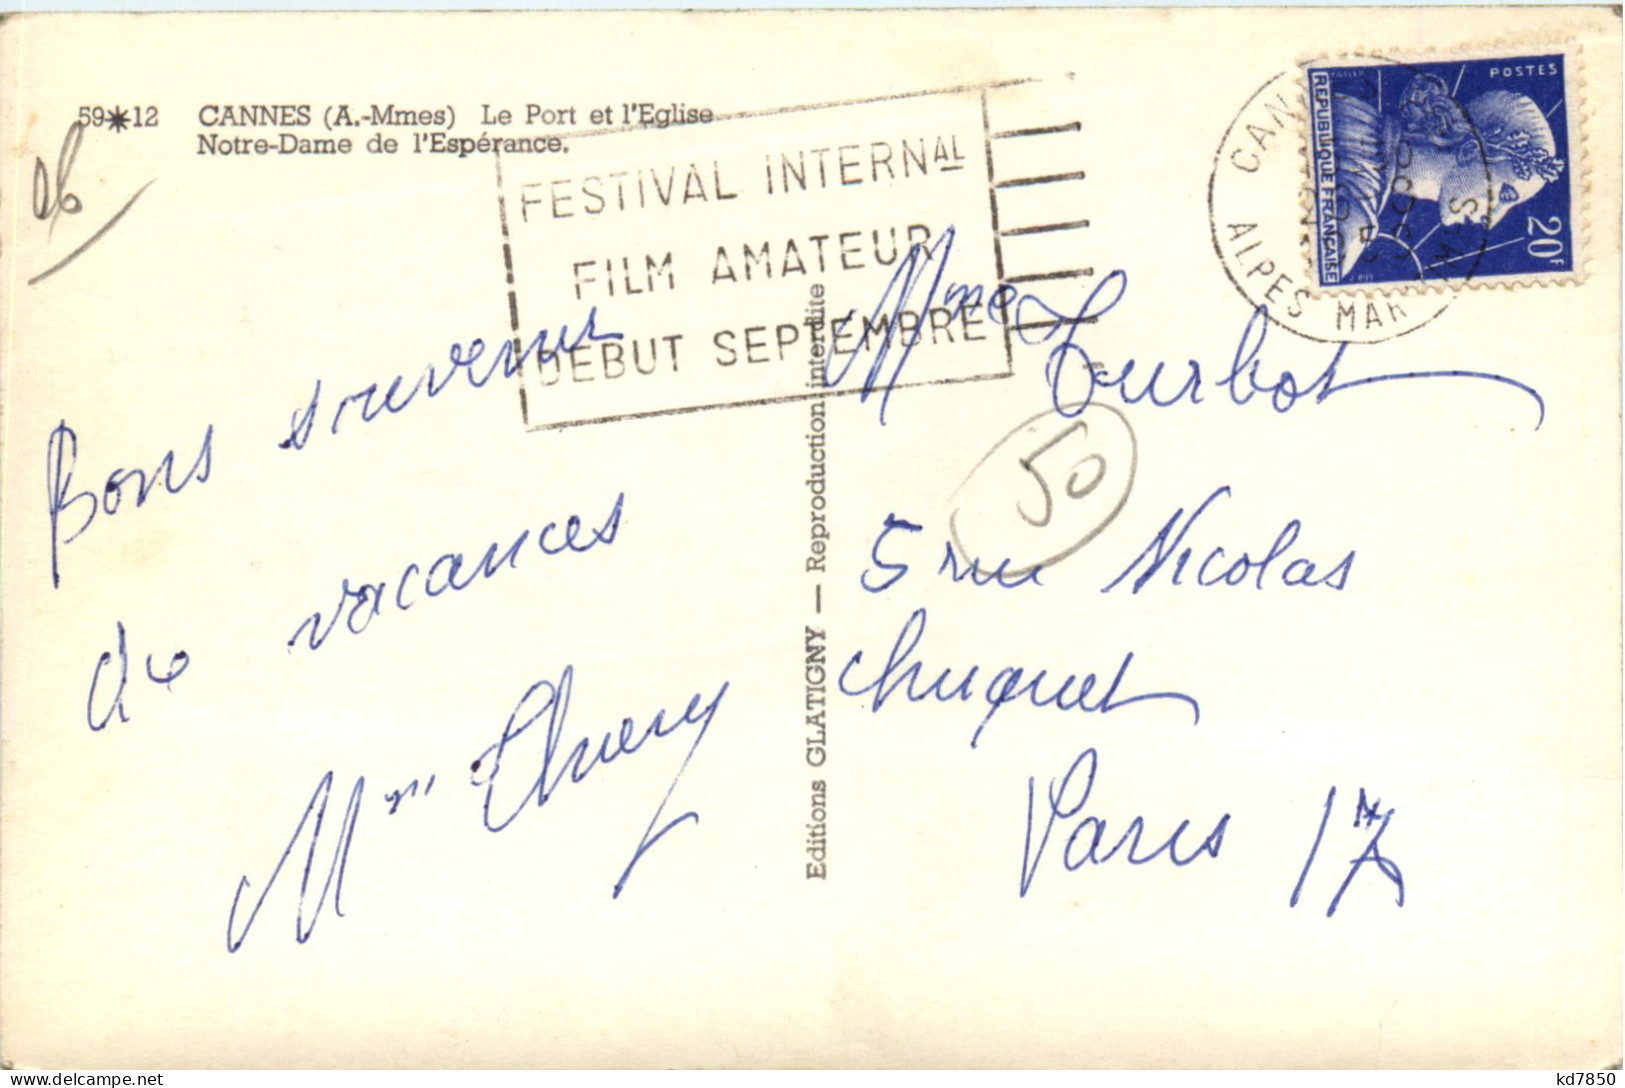 59✷12 CANNES (A.-Mmes) Le Port et l'Eglise
Notre-Dame de l'Espérance.
06
FESTIVAL INTERNAL
FILM AMATEUR
DEBUT SEPTEMBRE
CANNES
ALPES MARMES
POSTES
REPUBLIQUE FRANÇAISE
20F
Bons souvenir
de vacances
Mme Thiery
Editions GLATIGNY — Reproduction interdite
Mme Turbot
50
5 rue Nicolas
Chuquet
Paris 17
kd7850